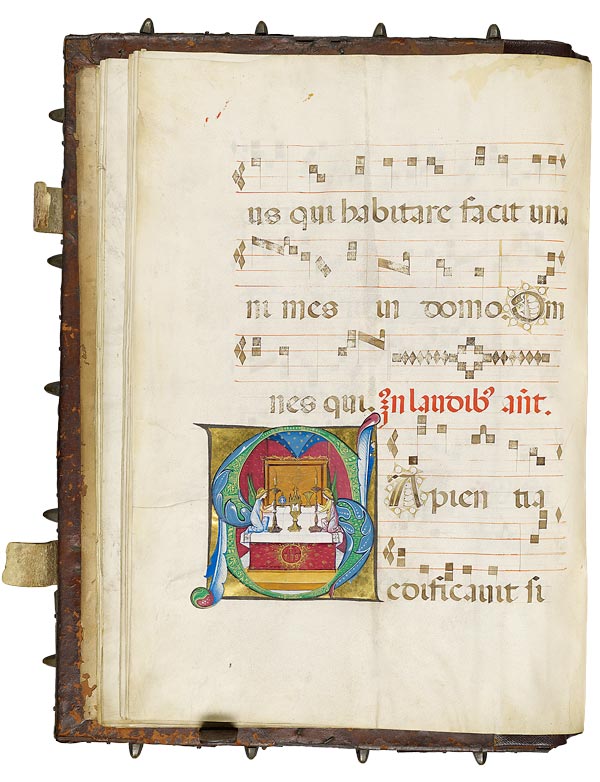 us qui habitare facit una
ni mes in domo. Om
nes qui. In laudib9 añt.
SApien tia
edificavit si